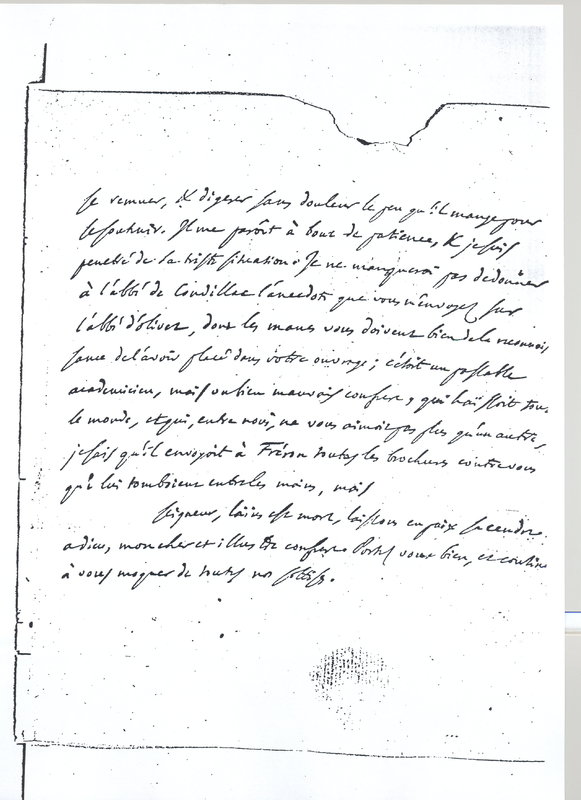 se remuer, & digerer sans douleur le peu qu'il mange pour
se soutenir. Il me paroit à bout de patience, & je suis
penetré de sa triste situation. Je ne manquerai pas de donner
à l'abbé de Condillac l'anecdote que vous m'envoyez sur
l'abbé d'olivet, dont les manes vous doivent bien de la reconnois
sance de l'avoir placé dans votre ouvrage; c'étoit un passable
academicien, mais un bien mauvais confrere, qui haïssoit tout
le monde, et qui, entre nous, ne vous aimoit pas plus qu'un autre,
je sais qu'il envoyoit à Fréron toutes les brochures contre vous
qui lui tomboient entre les mains, mais
Seigneur, laïus est mort, laissons en paix sa cendre.
adieu, mon cher et illustre confrere. Portez vous bien, et continuez
à vous moquer de toutes nos sottises.